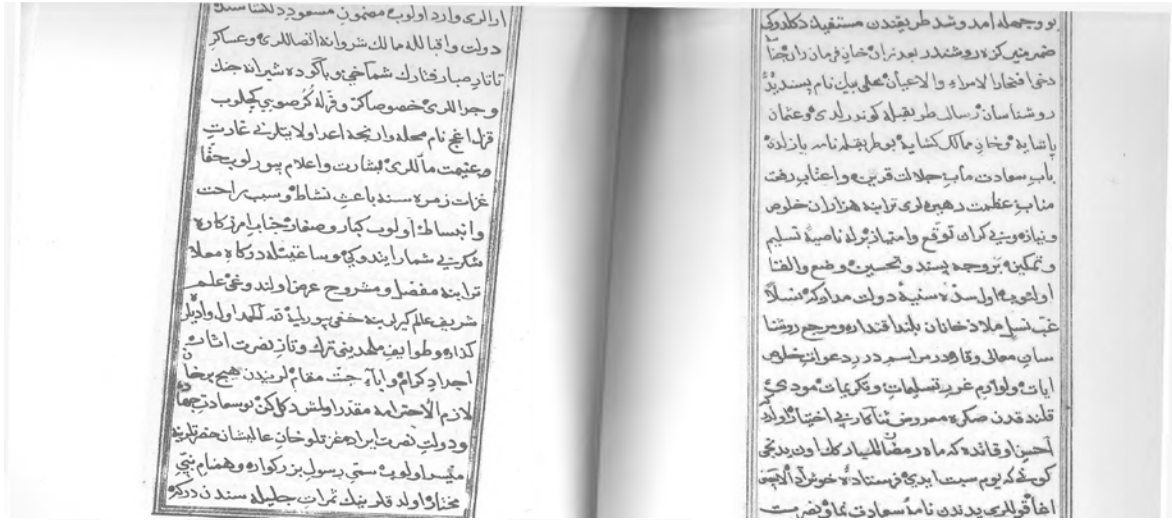 بو وجهله آمد و شد طريقندن مستفيد دكلدوكى
ضمير منير كزه روشندر بعد خان فرمان ران
دخى افتخار الامراء والاعيان على بيك نام پسنديدۀ
روشناسان رسالت طريقيله كوندرلدى وعثمان
پاشايه وخان ممالك كشايه بو طريقيله نامه يازلدى
باب سعادت مآب جلالت قرين واعتاب رفعت
مناب عظمت رهينلرى ترابنه هزاران خلوص
ونياز وبى كران توقع وامتياز برله ناصيۀ تسليم
وتمكين بر وجه پسند وتحسين وضع والقا
اولنوب اول سدۀ سنيۀ دولت مداركه نسلا
غب نسل ملاذ خانان بلند اقتدار ومرجع روشنا
سان معالى وقاردر مراسم درر دعوات خلوص
ايات ولوازم غرر تسليمات وتكريمات مودى
قلندقدن صكره معروض ثناكار بى اختيار اولدركه
احسن اوقاتده كه ماه رمضان المباركك اون يدنجى
كونى كه يوم سبت ايدى فرستادۀ خوش ادا
اغا قوللرى يدندن نامۀ سعادت نما ونصرت
ارالرى وارد اولوب مضمون مسعود دلكشاسنده
دولت واقبالله ممالك شروانه اتصاللرى وعساكر
تاتار صبا رفتارك شماخى وباكوده شيرانه جنك
وجداللرى خصوصا كر صويى كچلوب
قزل اغج نام محله وارنجه اعدا ولايتلرنى غارت
وغنيمت ماللرى بشارت واعلام بيوريلوب حقا
غزات زمره سنه باعث نشاط وسبب راحت
وانبساط اولوب كبار وصغار جناب آمرزكاره
شكر بى شمار ايتدوكى وساعتيله دركاه معلا
ترابنه مفصل ومشروح عرض اولندوغى علم
شريف عالم كيرلرينه خفى بيورليه لله الحمد اول واديلر
كذاره وطوايف ملحدينى ترك وتاز نصرت اثار
اجداد كرام وآباء جنت مقاملريندن هيچ بر خان
لازم الاحترامه مقدر اولمش دكلكن بو سعادت
ودولت نصرت ايراده خان عاليشان حضرتلرينه
ميسر اولوب سمى رسول بزركوار وهمنام نبى
مختار اولدقلرينك ثمرات جليله سندندركه